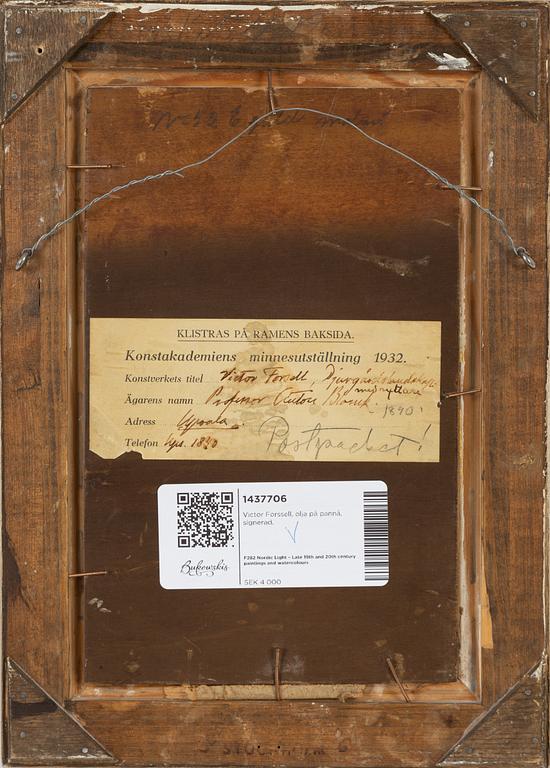 No 52 E
KLISTRAS PÅ RAMENS BAKSIDA.
Konstakademiens minnesutställning 1932.
Konstverkets titel Victor Forsell, Djurgårdslandskap
med ryttare
Ägarens namn Professor
1890.
Adress Upsala.
Telefon Ups. 1890
Postpacket!
1437706
Victor Forssell, olja på pannå,
signerad.
F282 Nordic Light – Late 19th and 20th century
paintings and watercolours
Bukowskis
SEK 4 000